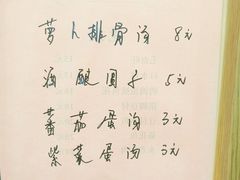 萝卜排骨汤 8元
酒酿圆子 5元
蕃茄蛋汤 3元
紫菜蛋汤 3元